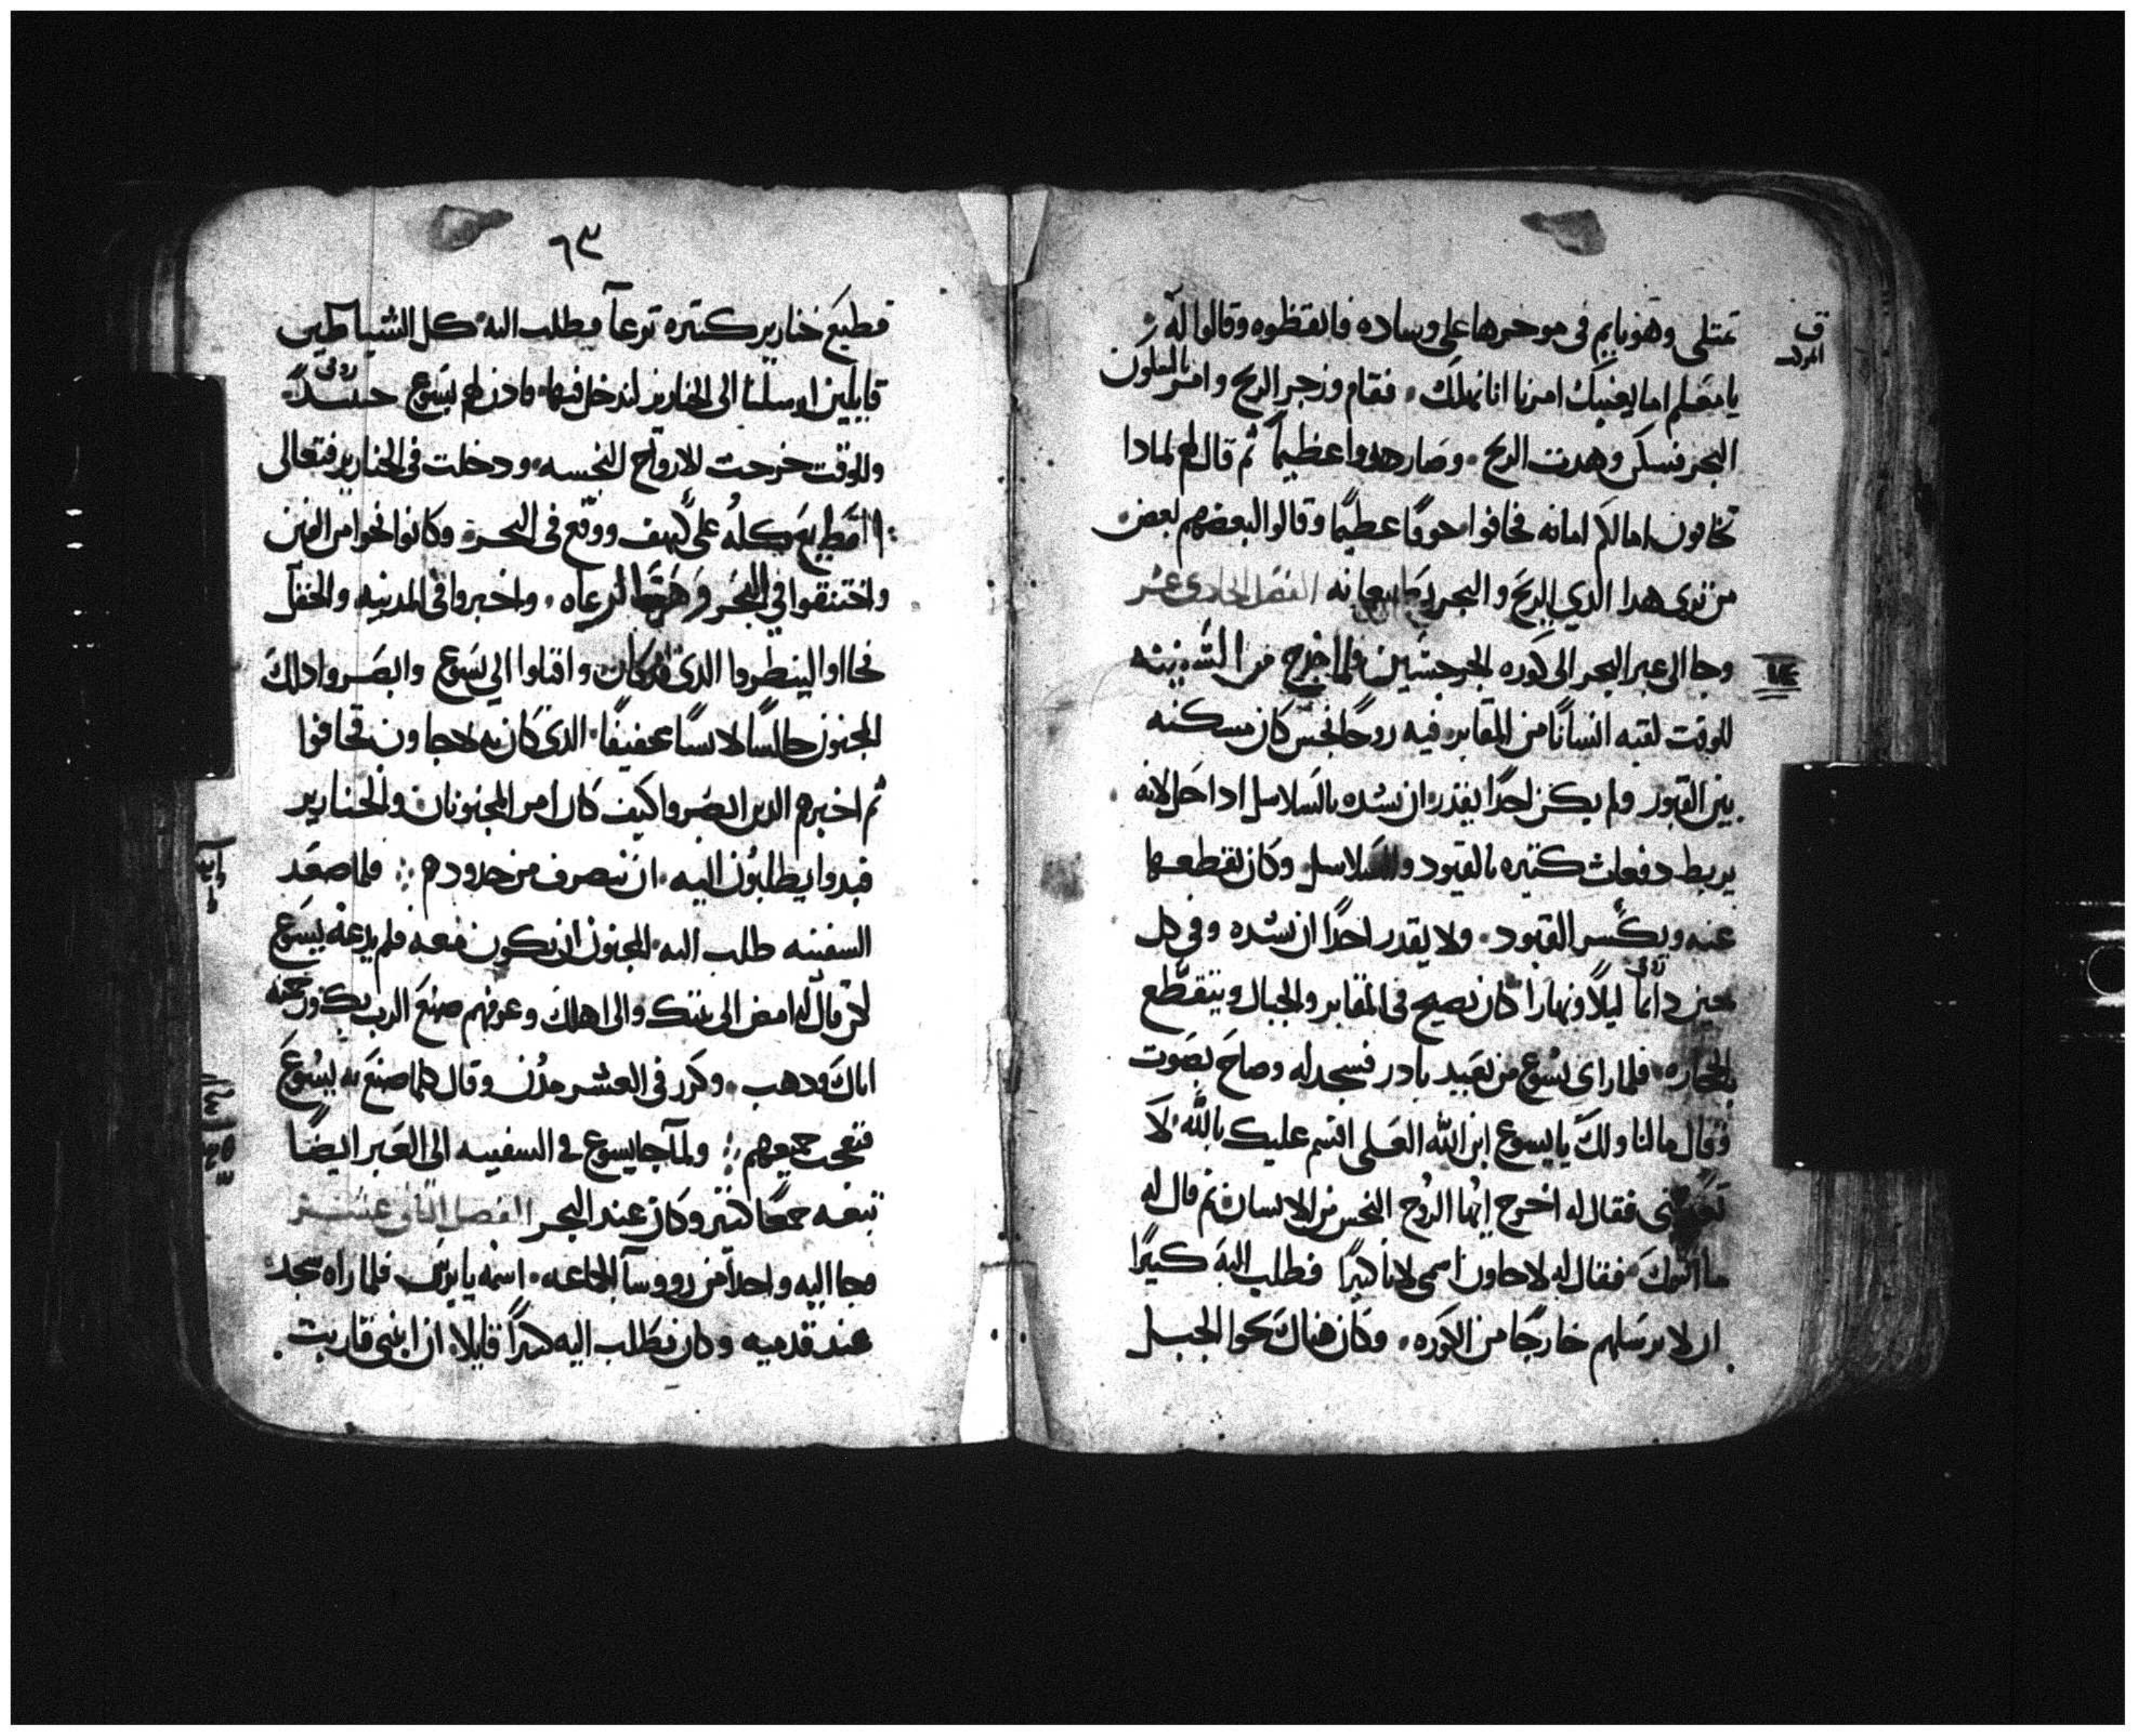 تمتلى وهو نايم فى موخرها على وساده فايقظوه وقالوا له
يا معلم اما يعنيك امرنا اننا نهلك فقام وزجر الريح وامر
البحر فسكن وهدت الريح وصار هدوا عظيماً ثم قال لهم لمادا
تخافون اما لكم امانه فخافوا خوفًا عظيمًا وقالوا لبعضهم بعض
من ترى هدا الدي الريح والبحر يطيعانه الفصل الحادى عشر
وجا الى عبر البحر الى كوره الجرجسيين فلما خرج من السفينه
للوقت لقيه انسانًا من المقابر فيه روحًا نجس كان مسكنه
بين القبور ولم يكن احدًا يقدر ان يشده بالسلاسل لانه
يربط دفعات كتيره بالقيود والسلاسل وكان يقطعها
عنه ويكسر القيود ولا يقدر احدًا ان يشده وفى كل
حين دائمًا ليلاً ونهارًا كان يصيح فى المقابر والجبال ويتقطع
بالحجاره فلما راى يسوع من بعيد بادر فسجد له وصاح بصوت
وقال ما لنا ولك يا يسوع ابن الله العلى اقسم عليك بالله لا
فقال له اخرج ايها الروح النجس من الانسان ثم قال له
ما اسمك فقال له لاجاون اسمى لانا كثيرًا فطلب اليه كثيرًا
ان لا يرسلهم خارجًا من الكوره وكان هناك نحوا الجبل
٦٣
قطيع خنازير كتيره ترعا فطلب اليه كل الشياطين
قايلين ارسلنا الى الخنازير لندخل فيها فادن لهم يسوع
وللوقت خرجت الارواح النجسه ودخلت فى الخنازير فتعالى
القطيع كله على كهف ووقع فى البحر وكانوا نحوا من الفين
واختنقوا في البحر الرعاه واخبروا فى المدينه والحقل
فجااوا لينظروا الدى كان واقبلوا الي يسوع وابصروا دلك
المجنون جالسًا لابسًا عفيفًا الدى كان به لاجاون فخافوا
ثم اخبرهم الدين ابصروا كيف كان امر المجنونان والخنازير
فبدوا يطلبون اليه ان ينصرف من حدودهم فلما صعد
السفينه طلب اليه المجنون ان يكون معه فلم يدعه يسوع
لكن قال له امض الى بيتك والى اهلك وعرفهم صنع الرب بك ورحمته
اياك ودهب وكرر فى العشر مدن وقال كلما صنع به يسوع
فتعجب جميعهم ولما جا يسوع فى السفينه الى العبر ايضًا
تبعه جمعًا كتير وكان عند البحر الفصل الثانى عشر
وجا اليه واحداً من رووسآ الجماعه اسمه يايرس فلما راه سجد
عند قدميه وكان يطلب اليه كثيرًا قايلا ان ابنتى قاربت